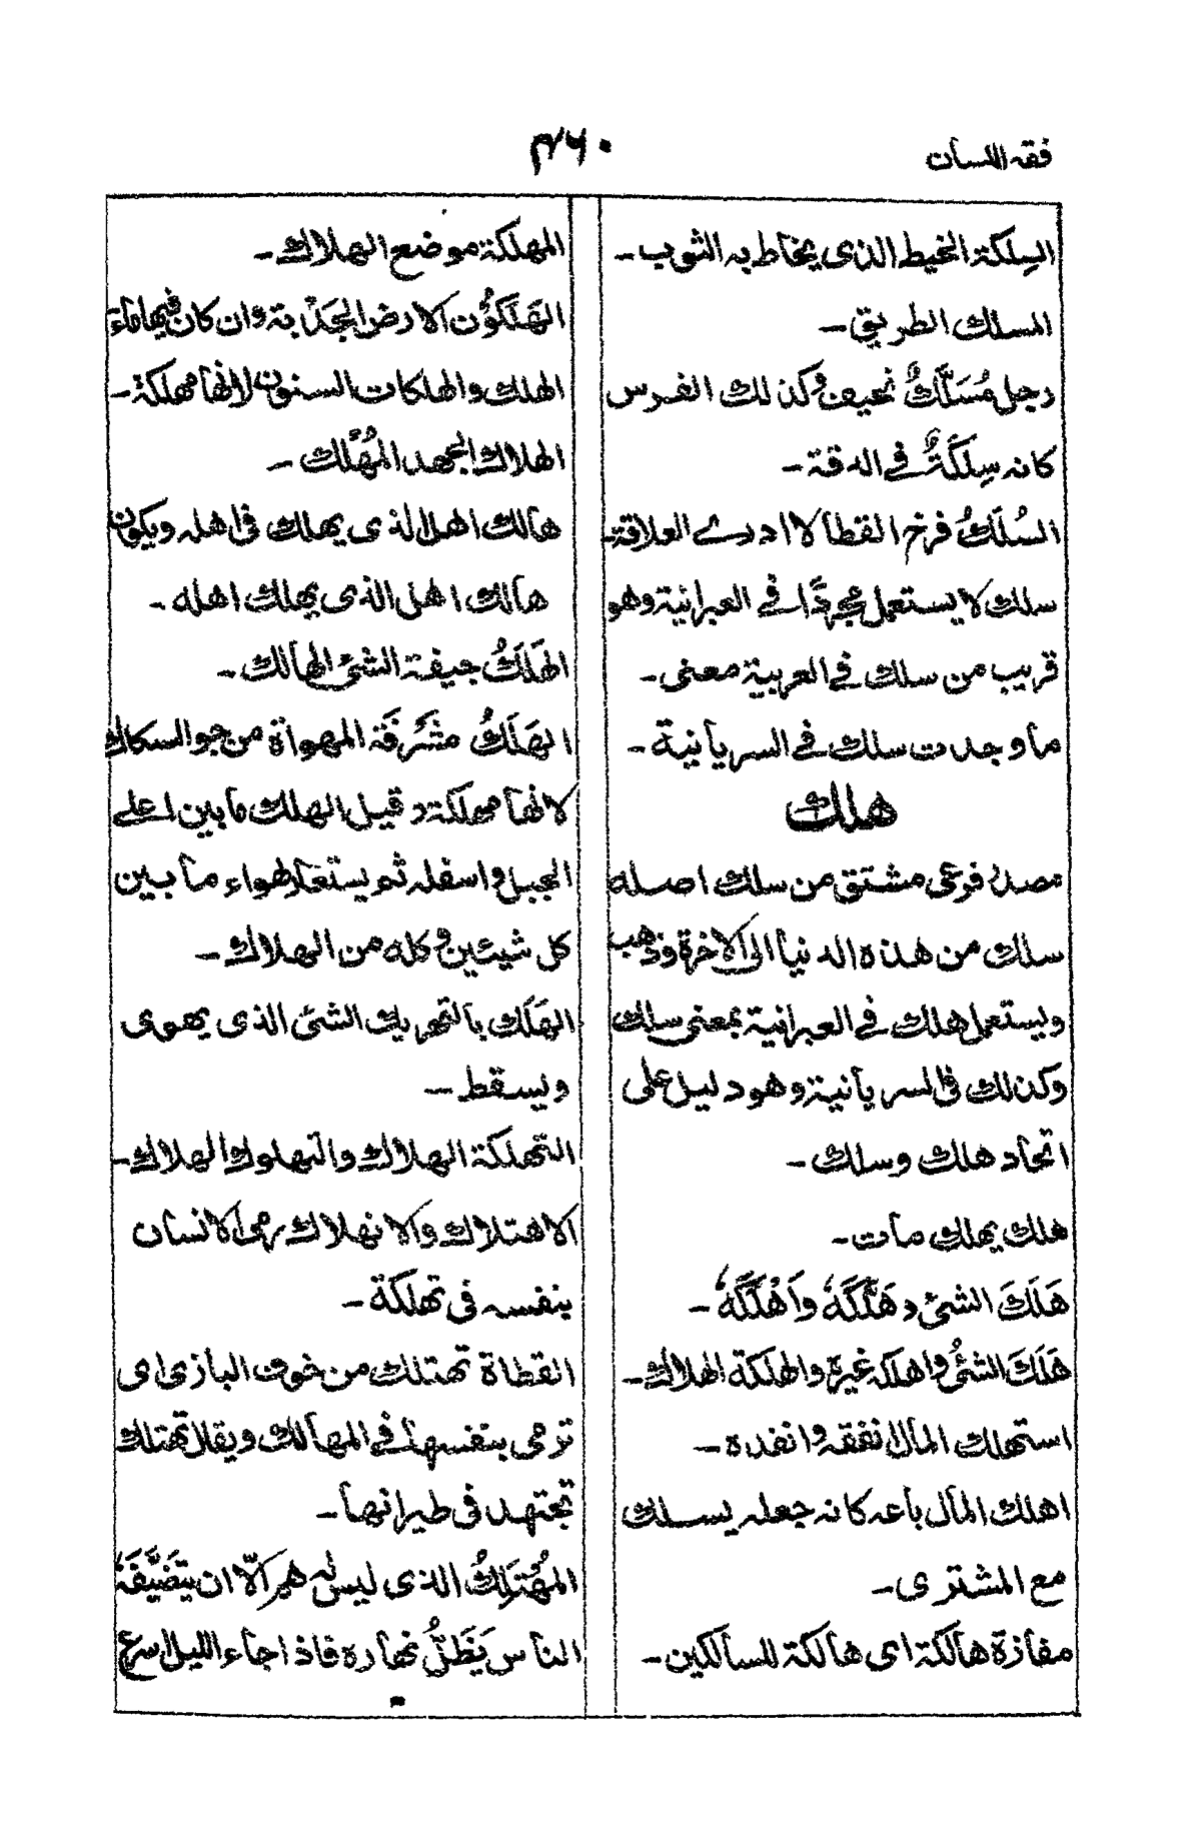 فقه اللسان
۴۶۰
السِلكة الخيط الذى يخاط به الثوب ـ
المسلك الطريق ـ
رجل مُسَلَّكٌ نحيف وكذلك الفرس
كانه سِلكَةٌ فے الدقة ـ
السُلَكُ فرخ القطا لا ادرے العلاقة ـ
سلك لا يستعمل مجردًا فے العبرانية وهو
قريب من سلك فے العربية معنى ـ
ما وجدت سلك فے السريانية ـ
هلك
مصدر فرعى مشتق من سلك اصله
سلك من هذه الدنيا الى الاخرة وذهب
ويستعمل هلك فے العبرانية بمعنى سلك
وكذلك فى السريانية وهو دليل على
اتحاد هلك وسلك ـ
هلك يهلك مات ـ
هَلَكَ الشئ وهَلَّكَهُ واَهْلَكَهُ ـ
هَلَكَ الشئُ واهلكه غيره والهلكة الهلاك ـ
استهلك المال انفقه وانفده ـ
اهلك المال باعه كانه جعله يسلك
مع المشترى ـ
مفازة هالكة اى هالكة للسالكين ـ
المهلكة موضع الهلاك ـ
الهَلَكُوْن الارض الجَدْبة وان كان فيها ماء
الهلك والهلكات السنون لانها مهلكة ـ
الهلاك الجهد المُهْلك ـ
هالك اهل الذى يهلك فى اهله ويكون
هالك اهل الذى يهلك اهله ـ
الهَلَكُ جيفة الشئ الهالك ـ
الهَلَكُ مشَرَفَة المهواة من جو السكاك
لانها مهلكة وقيل الهلك ما بين اعلى
الجبل واسفله ثم يستعار لهواء ما بين
كل شيئين وكله من الهلاك ـ
الهَلَك بالتحريك الشئ الذى يهوى
ويسقط ـ
التهلكة الهلاك والتهلوك الهلاك ـ
الاهتلاك والانهلاك رمى الانسان
بنفسه فى تهلكة ـ
القطاة تهتلك من خوف البازى اى
ترمى بنفسها فے المهالك ويقال تهتلك
تجتهد فى طيرانها ـ
المُهْتَلِكُ الذى ليس له هم الّا ان يتضَيَّفَهُ
الناس يَظَلُّ نهاره فاذا جاء الليل اسرع